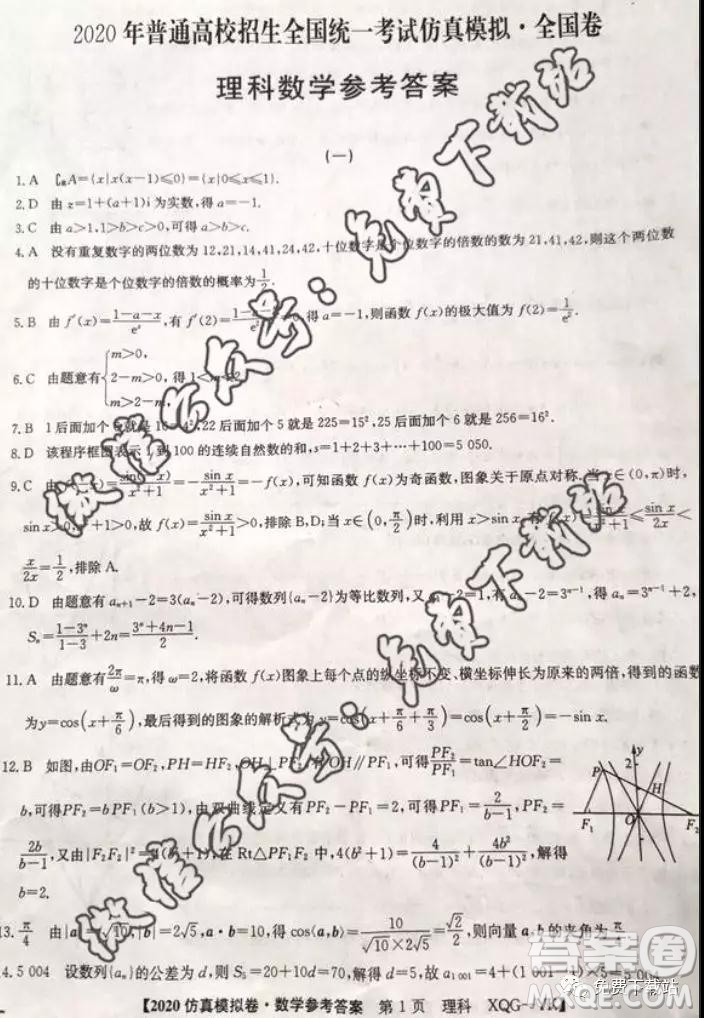 2020 年普通高校招生全国统一考试仿真模拟·全国卷
理科数学参考答案
(一)
1. A ∁ᵤA={x|x(x-1)≤0}={x|0≤x≤1}.
2. D 由 z=1+(a+1)i 为实数,得 a=-1.
3. C 由 a>1,1>b>c>0,可得 a>b>c.
4. A 没有重复数字的两位数为 12,21,14,41,24,42,十位数字是个位数字的倍数的数为 21,41,42,则这个两位数
的十位数字是个位数字的倍数的概率为1/2.
5. B 由 f′(x)=(1-a-x)/eˣ,有 f′(2)= =0,得 a=-1,则函数 f(x)的极大值为 f(2)=1/e².
6. C 由题意有{m>0, 2-m>0, m>2-m, 得 1<m<2.
7. B 1 后面加个 6 就是 16=4²,22 后面加个 5 就是 225=15²,25 后面加个 6 就是 256=16².
8. D 该程序框图表示 1 到 100 的连续自然数的和,s=1+2+3+…+100=5 050.
9. C 由 f(-x)=sin(-x)/(x²+1)=-sin x/(x²+1)=-f(x),可知函数 f(x)为奇函数,图象关于原点对称.当 x∈(0,π)时,
sin x>0, +1>0,故 f(x)>0,排除 B,D;当 x∈(0,π/2)时,利用 x>sin x, ≤sin x/2x<
x/2x=1/2,排除 A.
10. D 由题意有 aₙ₊₁-2=3(aₙ-2),可得数列{aₙ-2}为等比数列,又 a₁-2=1,有 aₙ-2=3ⁿ⁻¹,得 aₙ=3ⁿ⁻¹+2,
Sₙ=(1-3ⁿ)/(1-3)+2n=(3ⁿ+4n-1)/2.
11. A 由题意有2π/ω=π,得 ω=2,将函数 f(x)图象上每个点的纵坐标不变、横坐标伸长为原来的两倍,得到的函数
为 y=cos(x+π/6),最后得到的图象的解析式为 y=cos(x+π/6+π/3)=cos(x+π/2)=-sin x.
12. B 如图,由 OF₁=OF₂,PH=HF₂,OH∥PF₁,可得PF₂/PF₁=tan∠HOF₂=
b,可得 PF₂=bPF₁(b>1),由双曲线定义有 PF₂-PF₁=2,可得 PF₁=2/(b-1),PF₂=
2b/(b-1),又由|F₁F₂|²=4(b²+1),在 Rt△PF₁F₂ 中,4(b²+1)=4/(b-1)²+4b²/(b-1)²,解得
b=2.
y
2
P
H
F₁
O
F₂
x
13. π/4 由|a|=√10,|b|=2√5,a·b=10,得 cos⟨a,b⟩=10/(√10×2√5)=√2/2,则向量 a,b 的夹角为π/4.
14. 5 004 设数列{aₙ}的公差为 d,则 S₅=20+10d=70,解得 d=5,故 a₁ ₀₀₁=4+(1 001-1)×5=5 004.
【2020 仿真模拟卷·数学参考答案 第 1 页 理科 XQG
微信公众号:免费下载站
微信公众号:免费下载站
答案圈
免费下载站